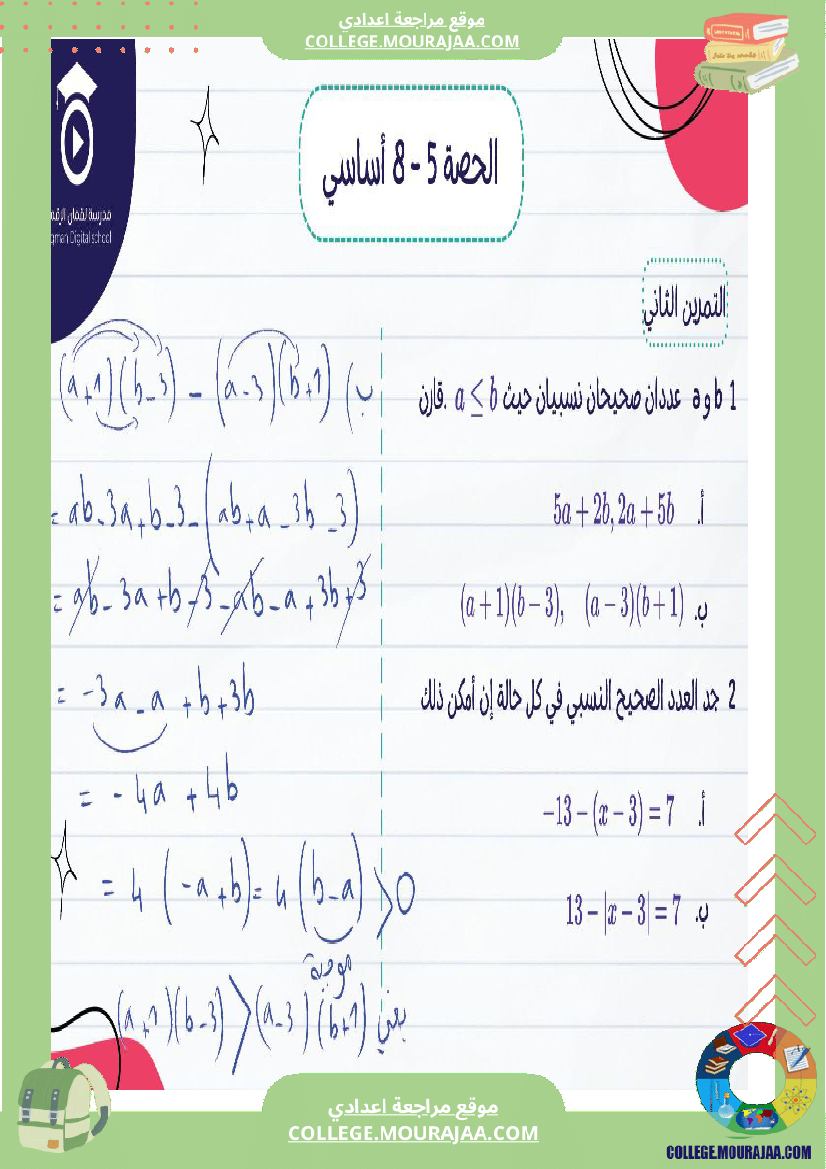 موقع مراجعة اعدادي
COLLEGE.MOURAJAA.COM
الحصة 5 - 8 أساسي
مدرسة لقمان الرقم
qman Digital school
التمرين الثاني
1 a و b عددان صحيحان نسبيان حيث a ≤ b .قارن
أ. 5a + 2b, 2a + 5b
ب. (a + 1)(b − 3), (a − 3)(b + 1)
2 جد العدد الصحيح النسبي في كل حالة إن أمكن ذلك
أ. −13 − (x − 3) = 7
ب. 13 − |x − 3| = 7
ب) (a+1)(b-3) - (a-3)(b+1)
= ab-3a+b-3-(ab+a-3b-3)
= ab-3a+b-3-ab-a+3b+3
= -3a-a+b+3b
= -4a+4b
= 4(-a+b) = 4(b-a) > 0
موجبة
يعني (a+1)(b-3) > (a-3)(b+1)
موقع مراجعة اعدادي
COLLEGE.MOURAJAA.COM
COLLEGE.MOURAJAA.COM